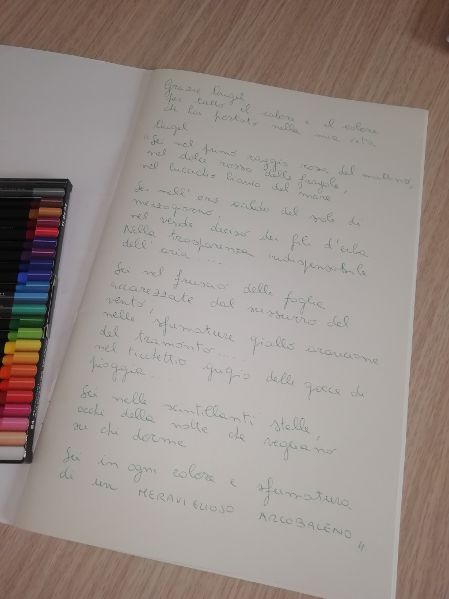 Grazie Luigil
per tutto il calore e il colore
che hai portato nella mia vita
Luigil
"Sei nel primo raggio rosa del mattino,
nel dolce rosso delle fragole,
nel luccichio bianco del mare
Sei nell'oro caldo del sole di
mezzogiorno,
nel verde deciso dei fili d'erba
Nella trasparenza indispensabile
dell'aria....
Sei nel fruscio delle foglie
accarezzate dal sussurro del
vento,
nelle sfumature giallo arancione
del tramonto.....
nel ticchettio grigio delle gocce di
pioggia..
Sei nelle scintillanti stelle,
occhi della notte che vegliano
su chi dorme
Sei in ogni colore e sfumatura
di un MERAVIGLIOSO ARCOBALENO"